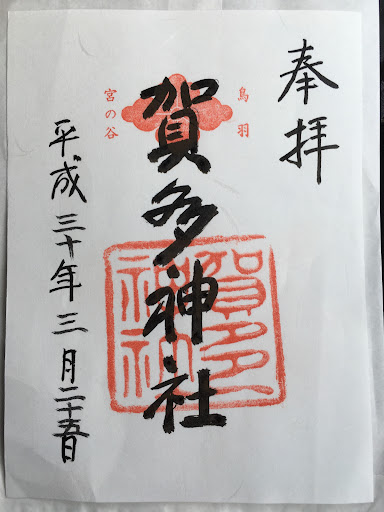 奉拝
鳥羽
賀多神社
宮の谷
賀多
神社
平成三十年三月二十五日